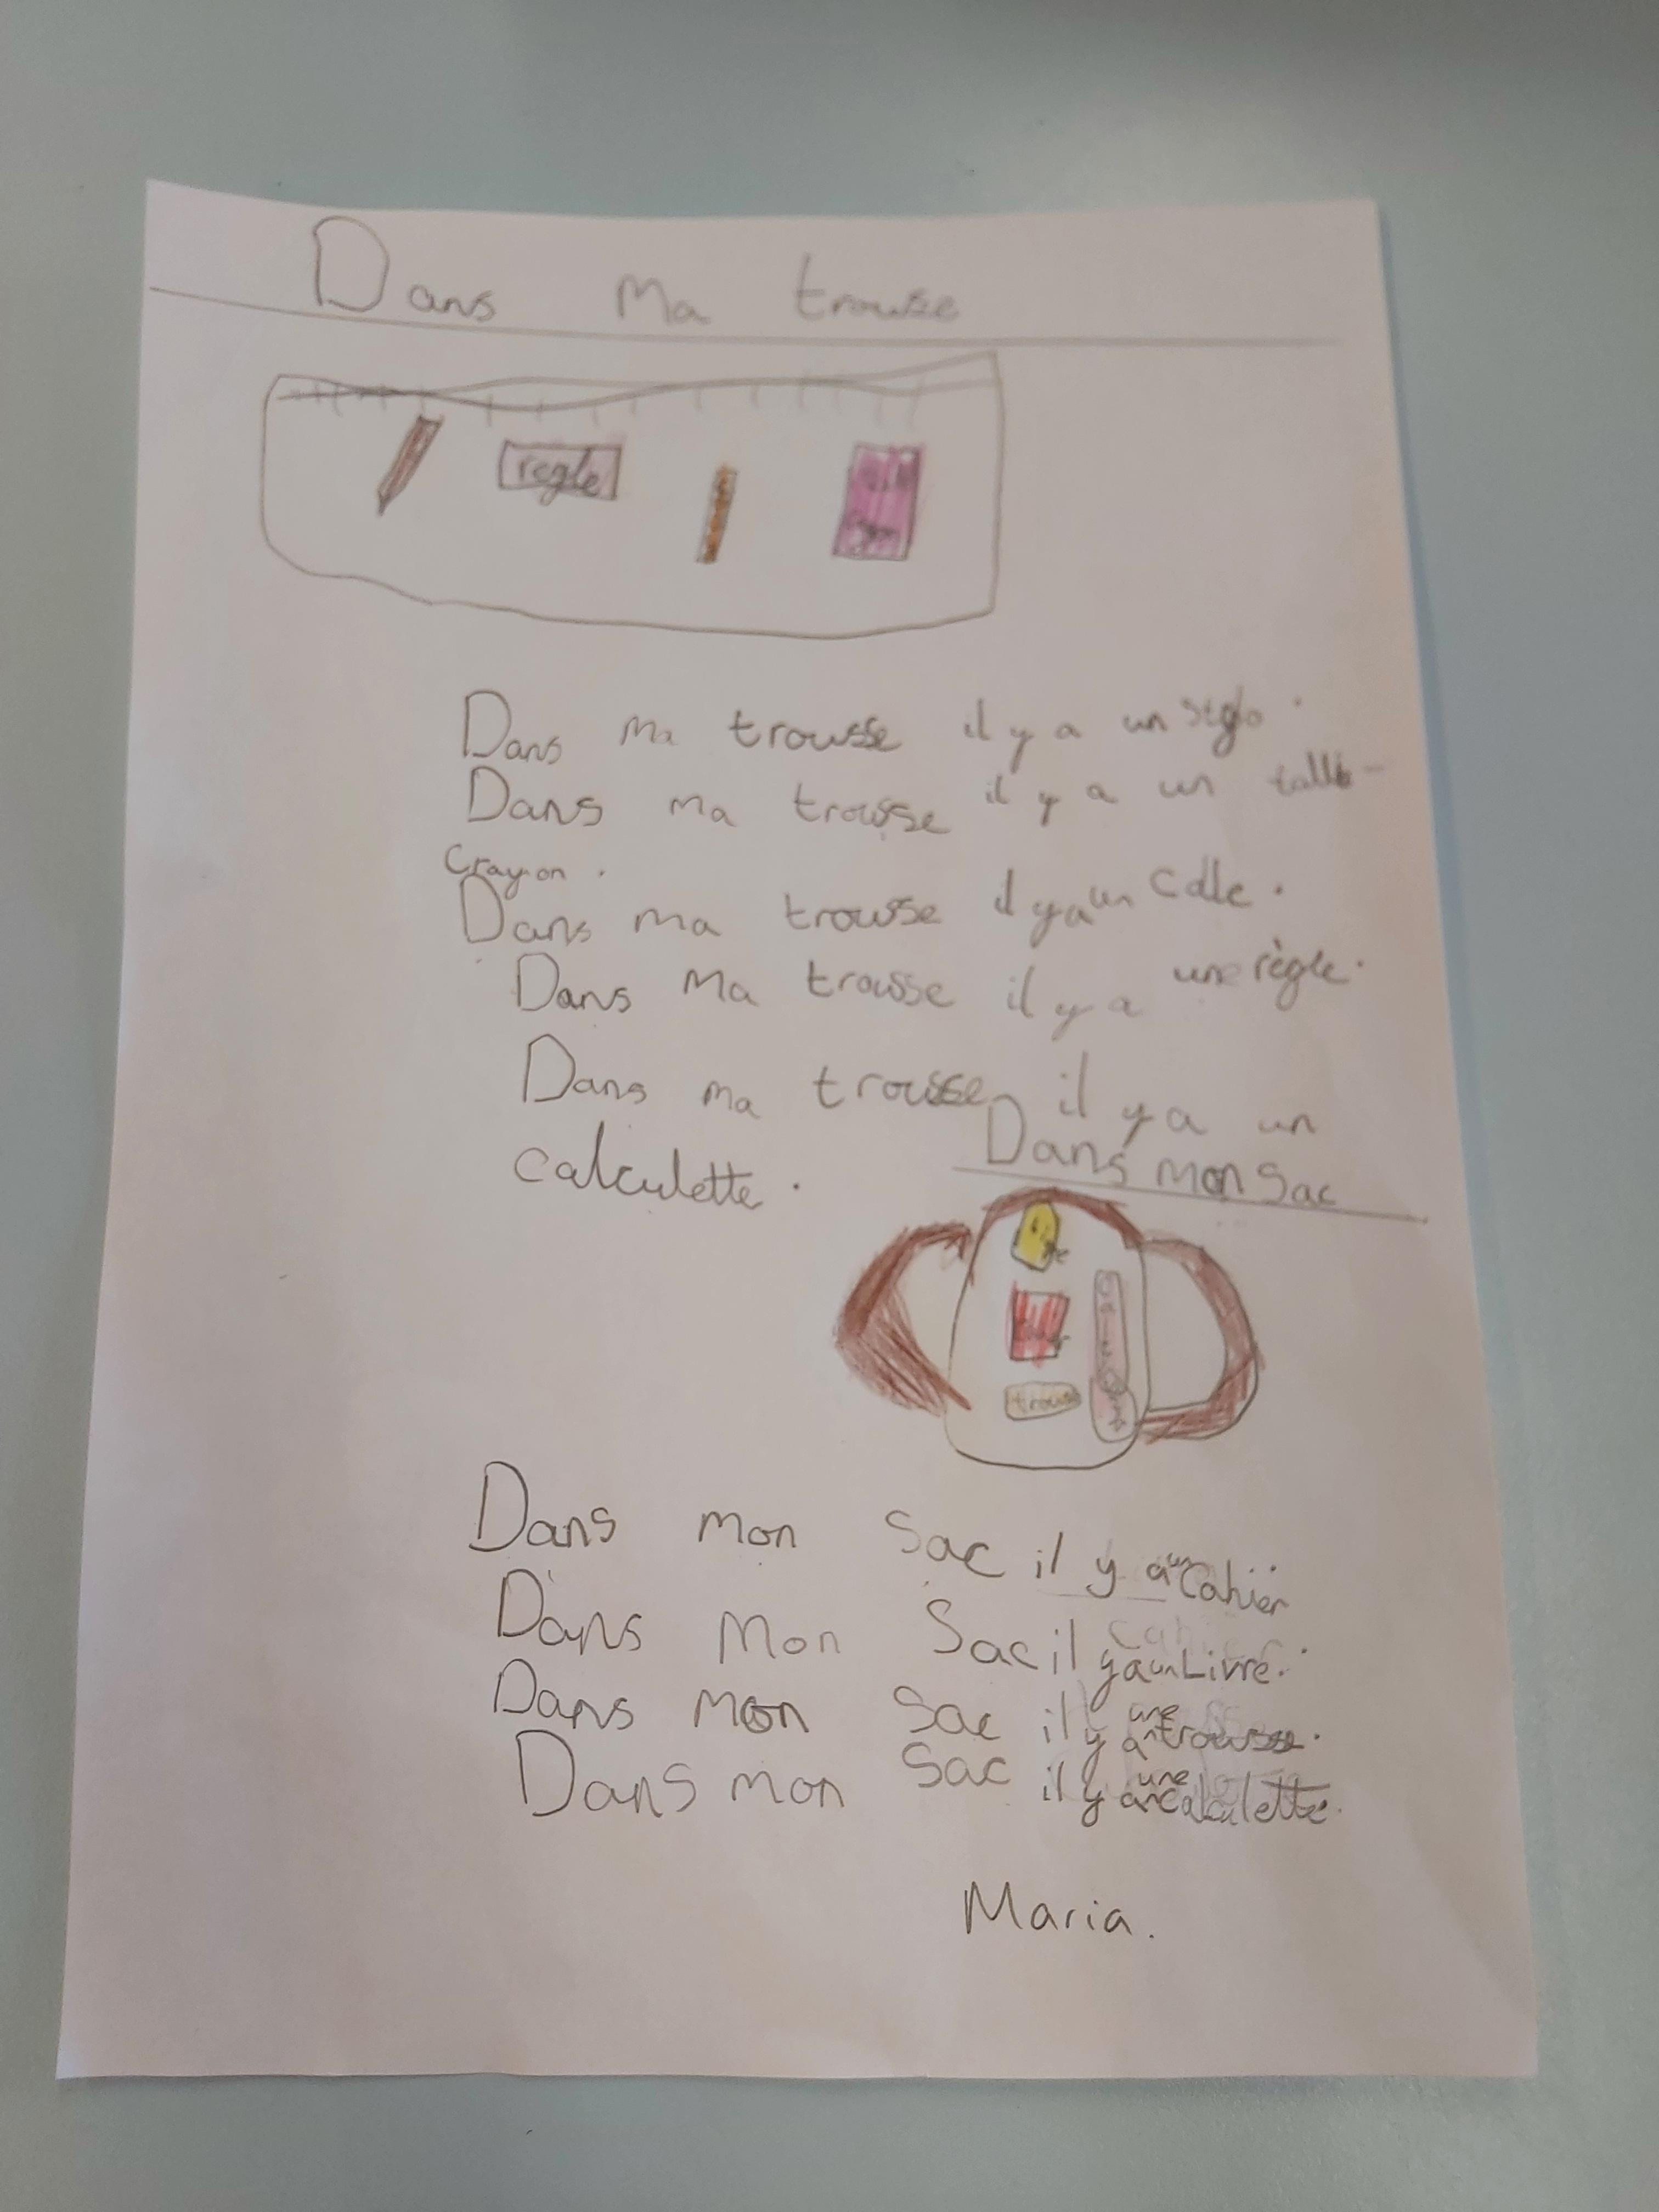 Dans Ma trousse
règle
Dans ma trousse il y a un stylo.
Dans ma trousse il y a un taille-
crayon.
Dans ma trousse il y a un colle.
Dans Ma trousse il y a une règle.
Dans ma trousse il y a un
calculette.
Dans mon Sac
trousse
Dans mon Sac il y a un Cahier
Dans Mon Sac il y a un Livre.
Dans mon Sac il y a une trousse.
Dans mon Sac il y a une calculette.
Maria.